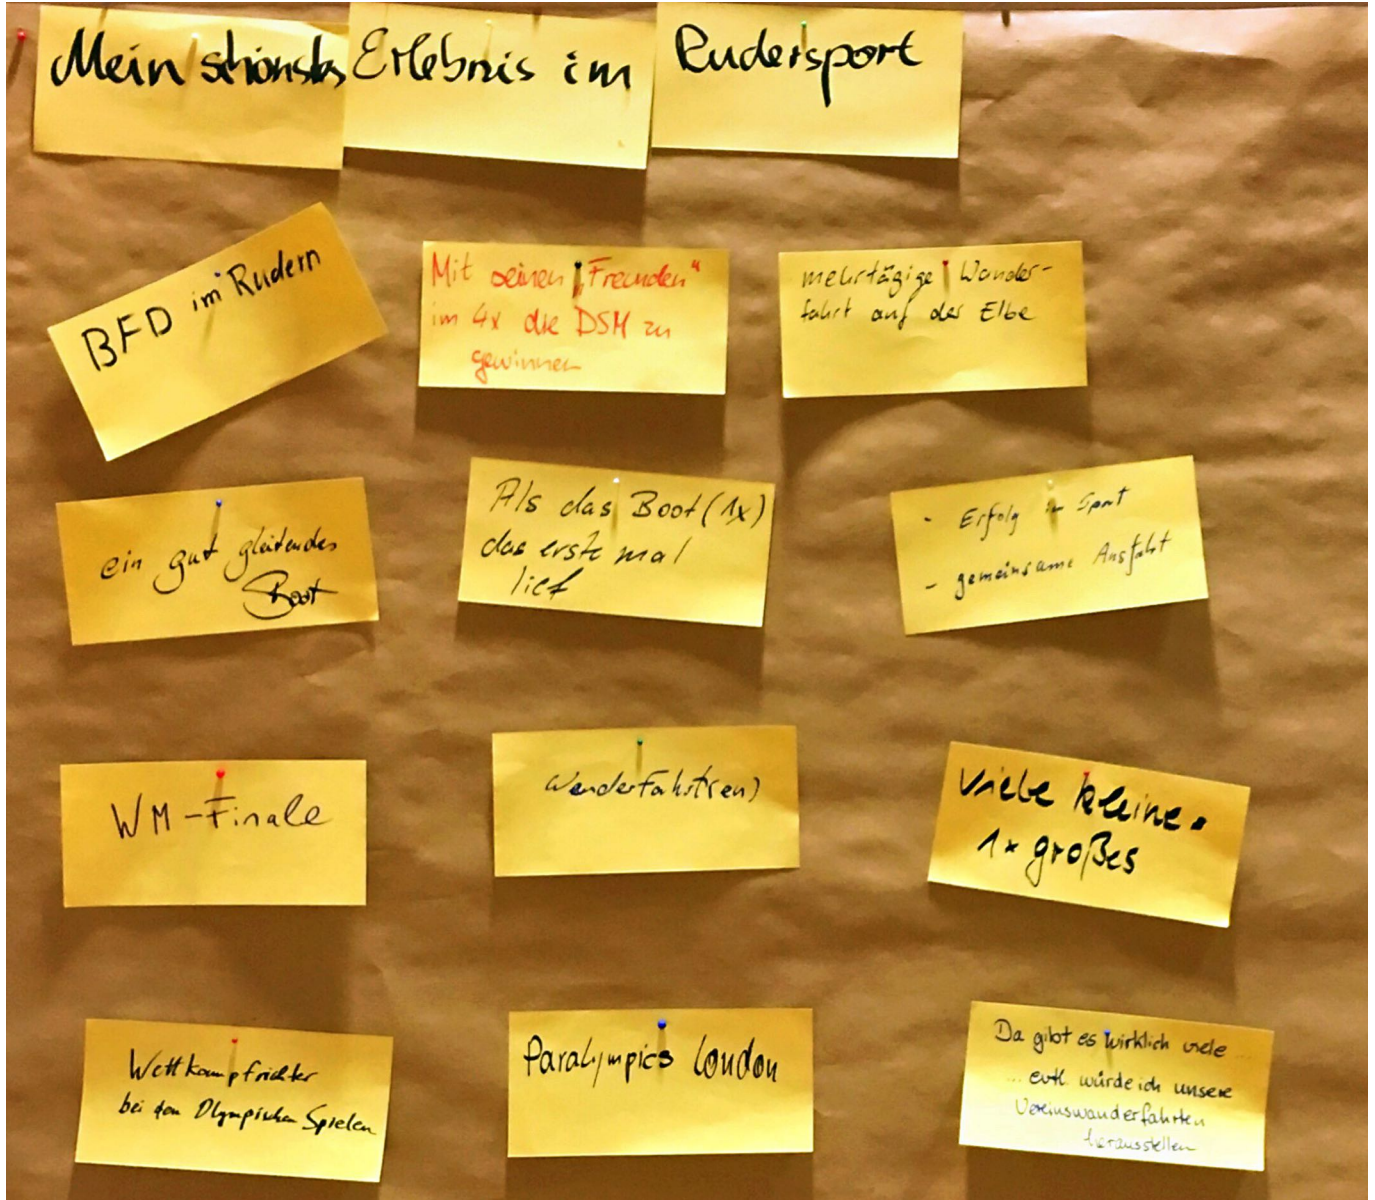 Mein schönstes Erlebnis im Rudersport
BFD im Rudern
Mit seinen „Freunden“
im 4x die DSM zu
gewinnen
mehrtägige Wander-
fahrt auf der Elbe
ein gut gleitendes
Boot
Als das Boot (1x)
das erste mal
lief
- Erfolg im Sport
- gemeinsame Ausfahrt
WM-Finale
Wanderfahrt(en)
viele kleine
1x großes
Wettkampfrichter
bei den Olympischen Spielen
Paralympics London
Da gibt es wirklich viele ...
... evtl. würde ich unsere
Vereinswanderfahrten
herausstellen